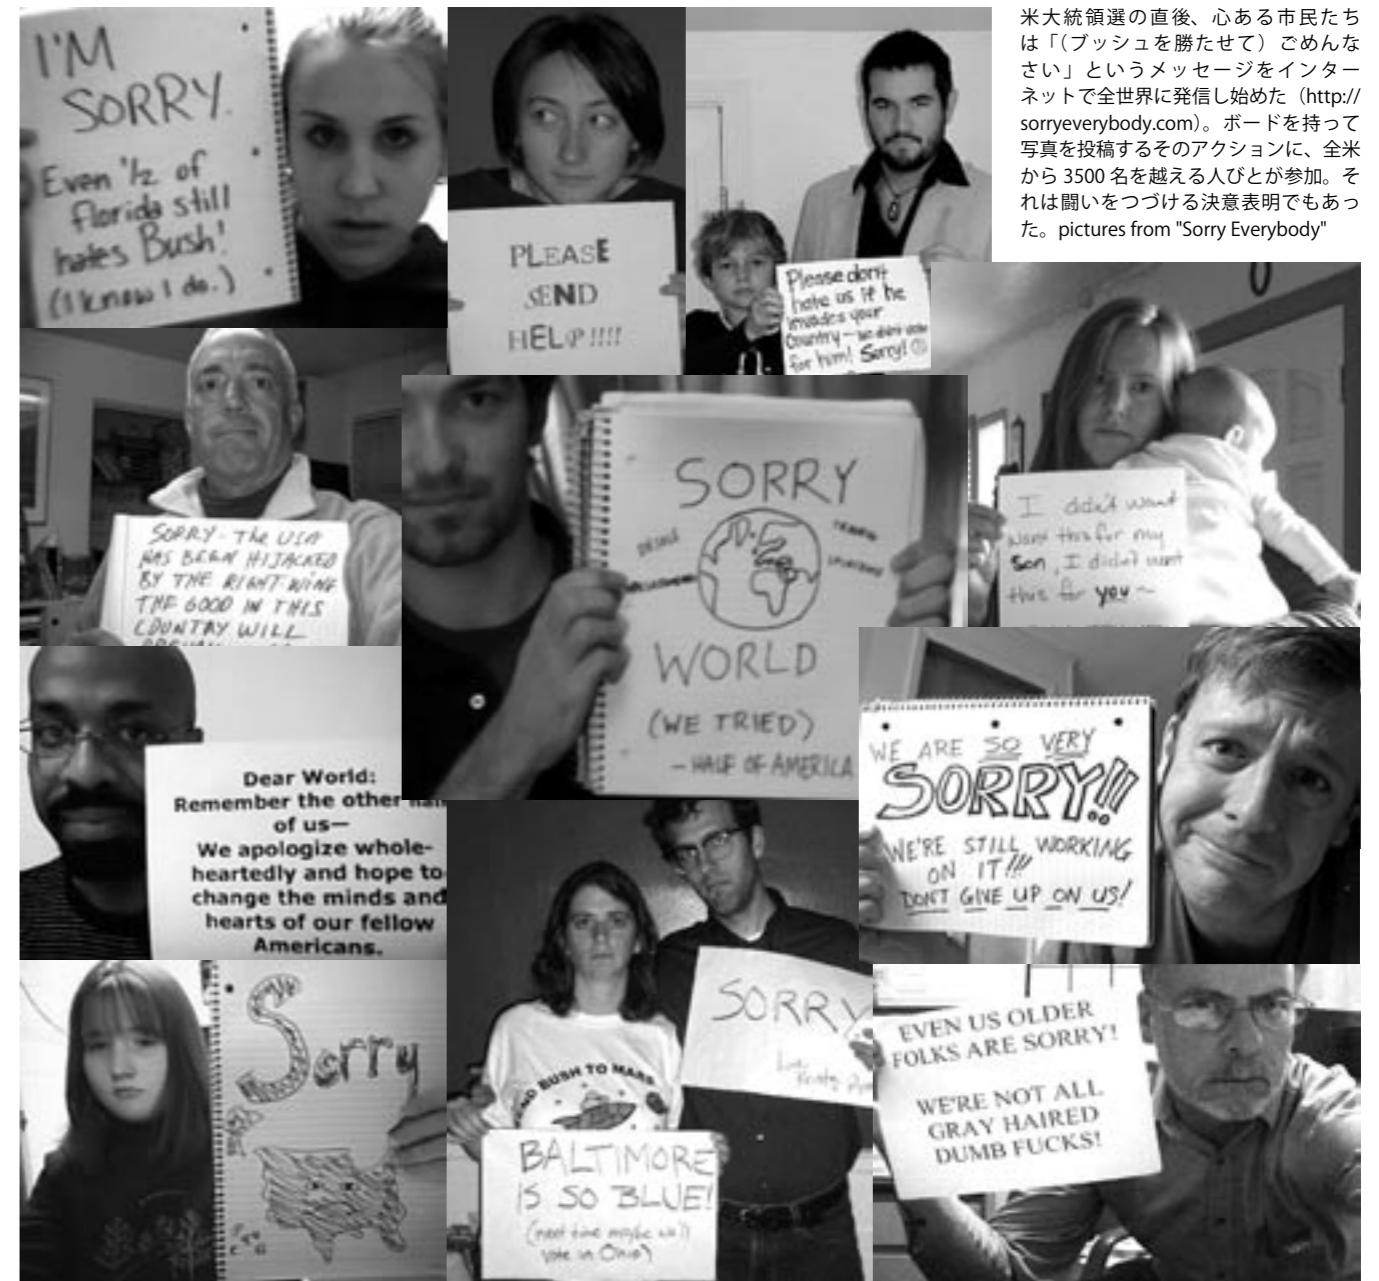 米大統領選の直後、心ある市民たち
は「（ブッシュを勝たせて）ごめんな
さい」というメッセージをインター
ネットで全世界に発信し始めた（http://
sorryeverybody.com）。ボードを持って
写真を投稿するそのアクションに、全米
から 3500 名を越える人びとが参加。そ
れは闘いをつづける決意表明でもあっ
た。pictures from "Sorry Everybody"
I'M
SORRY.
Even 1/2 of
florida still
hates Bush!
(I know I do.)
PLEASE
SEND
HELP!!!!
Please don't
hate us if he
invades your
Country - we didn't vote
for him! Sorry!
SORRY - The USA
HAS BEEN HIJACKED
BY THE RIGHT WING
THE GOOD IN THIS
COUNTRY WILL
SORRY
WORLD
(WE TRIED)
- HALF OF AMERICA
I didn't want
want this for my
Son, I didn't want
this for you ~
Dear World:
Remember the other half
of us—
We apologize whole-
heartedly and hope to
change the minds and
hearts of our fellow
Americans.
WE ARE SO VERY
SORRY!!
WE'RE STILL WORKING
ON IT!!!
DON'T GIVE UP ON US!
Sorry
BUSH TO MARS
SORRY
BALTIMORE
IS SO BLUE!
(next time maybe we'll
vote in Ohio)
EVEN US OLDER
FOLKS ARE SORRY!
WE'RE NOT ALL
GRAY HAIRED
DUMB FUCKS!